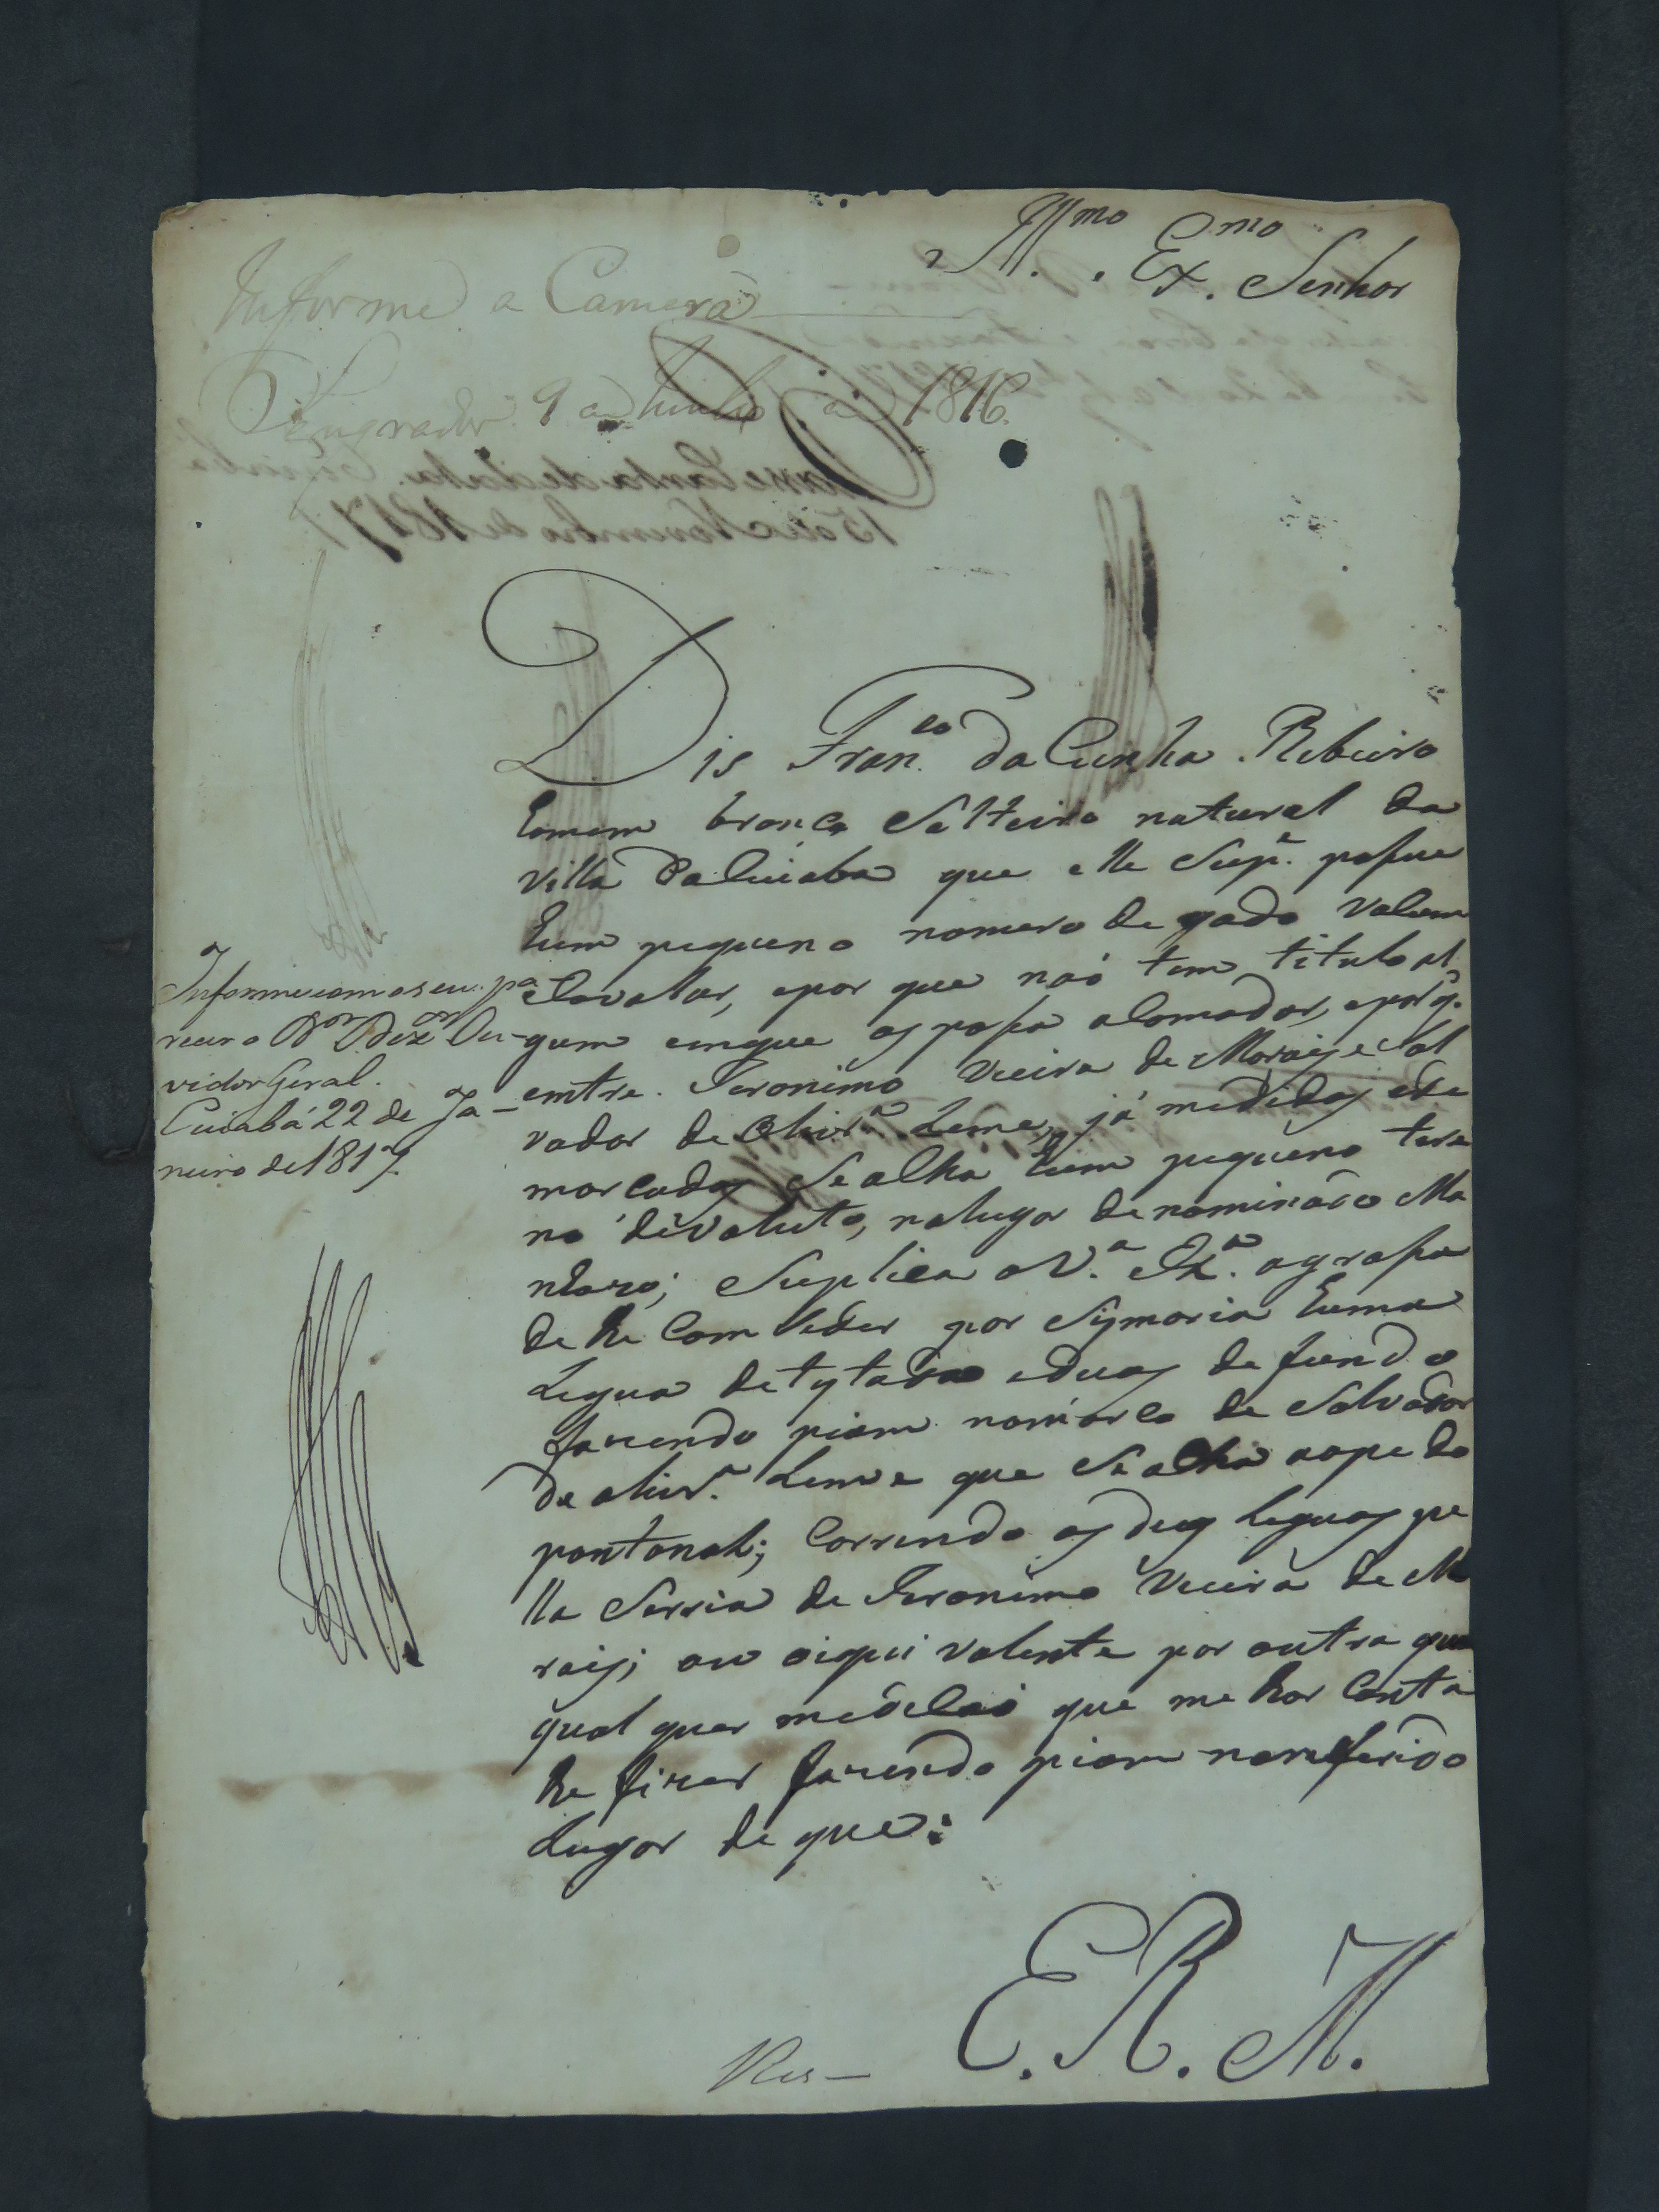 Illmo. Exmo. Senhor
Informe a Camera
9 de Junho de 1816
Dis Franco. da Cunha Ribeiro
homem branco Solteiro natural da
Villa do Cuiaba que elle Supe. posue
hum pequeno nomero de gado vacum
e Cavalar, e por que naó tem titulo al
gum em que os posa acomodar, e por q.
emtre Jeronimo Vieira de Morais e Sal
vador de Olivra. Leme, já medidas e de
marcadas Se alha hum pequeno tere
no devoluto, no lugar denominado Ma
ndaro; Suplica a V.a Ex.a a grasa
de lhe Comseder por Sismaria huma
Legua de testada e duas de fundo
fazendo piam no marco de Salvador
de olivr.a Leme que Se alha ao pe do
pantanal; Correndo as duas Leguas pe
lla Serria de Jeronimo Vieira de Mo
rais; ou o iqui valente por outra qua
qual quer medesaó que melhor Conta
lhe fizer fazendo piam no referido
Lugar de que:
E. R. M.
Informe com o seu pa
recer o Dor. Dezor. Ou-
vidor Geral.
Cuiabá 22 de Ja-
neiro de 1817.